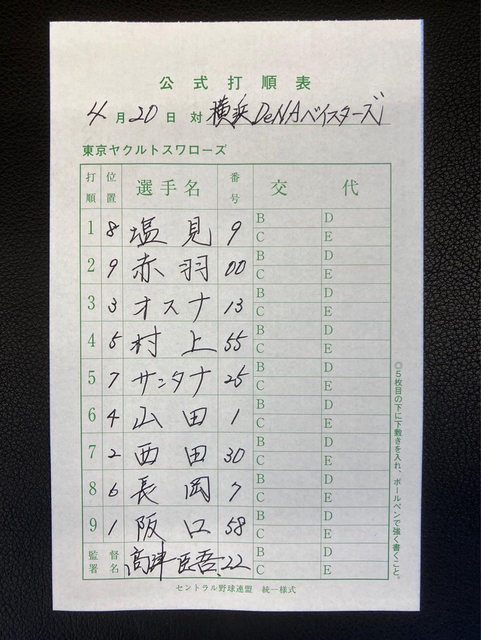 公式打順表
4月20日 対 横浜DeNAベイスターズ
東京ヤクルトスワローズ
打順 位置 選手名 番号 交代
1 8 塩見 9 B D
C E
2 9 赤羽 00 B D
C E
3 3 オスナ 13 B D
C E
4 5 村上 55 B D
C E
5 7 サンタナ 25 B D
C E
6 4 山田 1 B D
C E
7 2 西田 30 B D
C E
8 6 長岡 7 B D
C E
9 1 阪口 58 B D
C E
監督署名 高津臣吾 22 B D
C E
◎5枚目の下に下敷きを入れ、ボールペンで強く書くこと。
セントラル野球連盟 統一様式